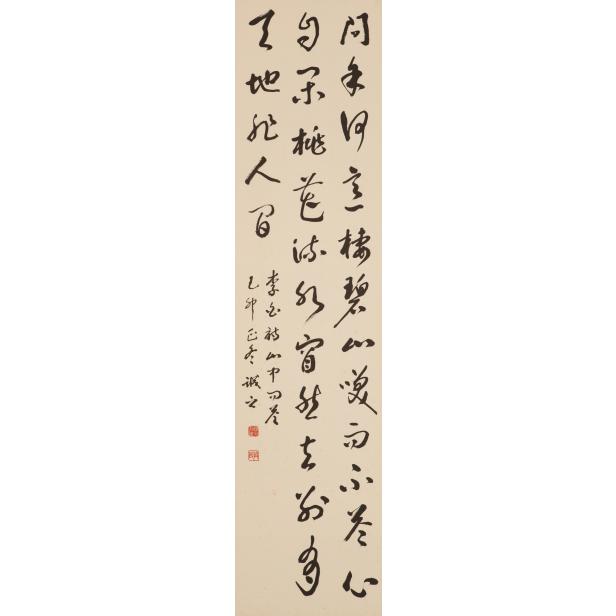 问余何意栖碧山笑而不答心
自闲桃花流水窅然去别有
天地非人间
李白诗山中问答
乙卯之冬诚之